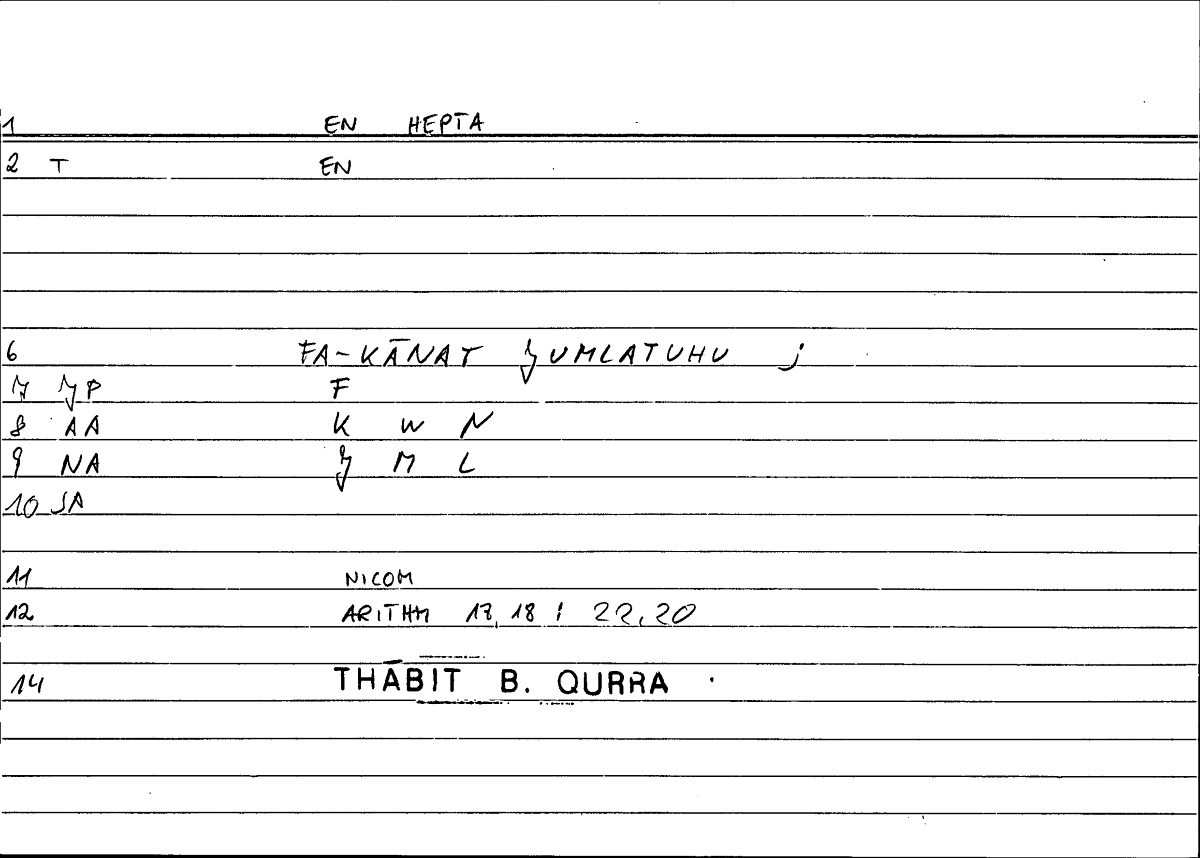 1 EN HEPTA
2 T EN
6 FA-KĀNAT ǦUMLATUHU j
7 ǦP F
8 AA K W N
9 NA Ǧ M L
10 SA
11 NICOM
12 ARITHM 17,18 : 22,20
14 THĀBIT B. QURRA